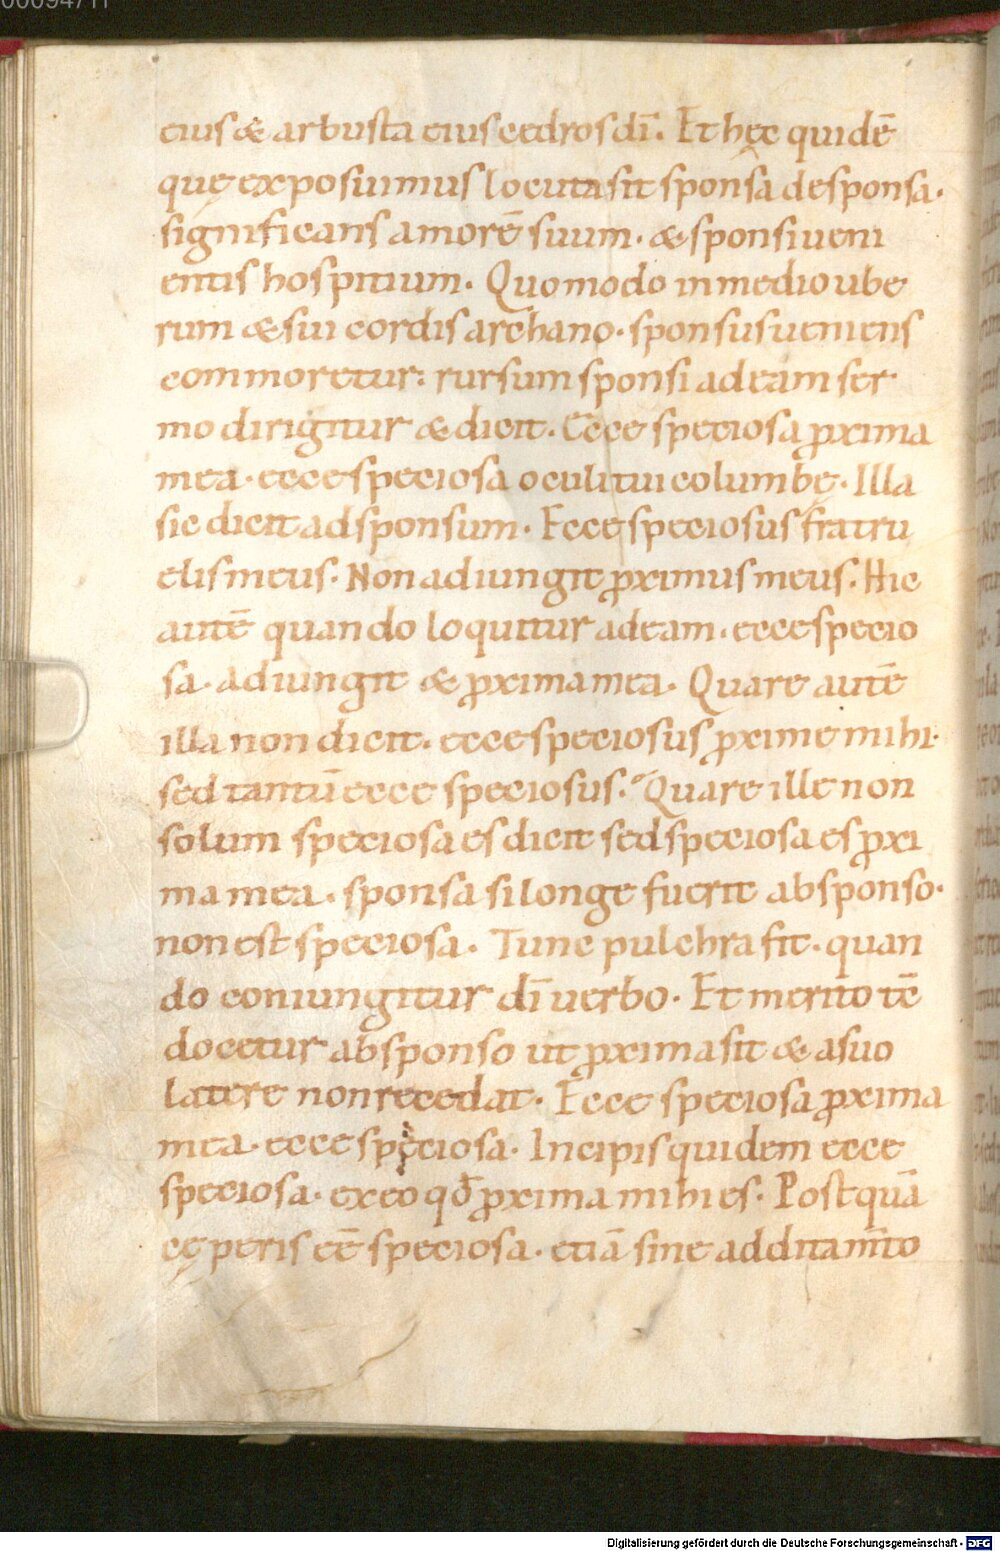 eius & arbusta eius cedros dī. Et hęc quidē
quę exposuimus locuta sit sponsa desponsa.
significans amorē suum. & sponsi ueni
entis hospitium. Quomodo in medio ube
rum & sui cordis archano. sponsus ueniens
commoretur: rursum sponsi ad eam ser
mo dirigitur & dicit. Ecce speciosa ꝓxima
mea. ecce speciosa oculi tui columbę. Illa
sic dicit ad sponsum. Ecce speciosus fratru
elis meus. Non adiungit ꝓximus meus. Hic
autē quando loquitur ad eam. ecce specio
sa. adiungit & ꝓxima mea. Quare autē
illa non dicit. ecce speciosus ꝓxime mihi.
sed tantū ecce speciosus. Quare ille non
solum speciosa es dicit sed speciosa es ꝓxi
ma mea. sponsa si longe fuerit ab sponso.
non est speciosa. Tunc pulchra fit. quan
do coniungitur dī uerbo. Et merito tē
docetur ab sponso ut ꝓxima sit & a suo
latere non recedat. Ecce speciosa ꝓxima
mea. ecce speciosa. Incipis quidem ecce
speciosa. ex eo qđ ꝓxima mihi es. Postquā
cęperis eē speciosa. etiā sine additam̄to
Digitalisierung gefördert durch die Deutsche Forschungsgemeinschaft - DFG